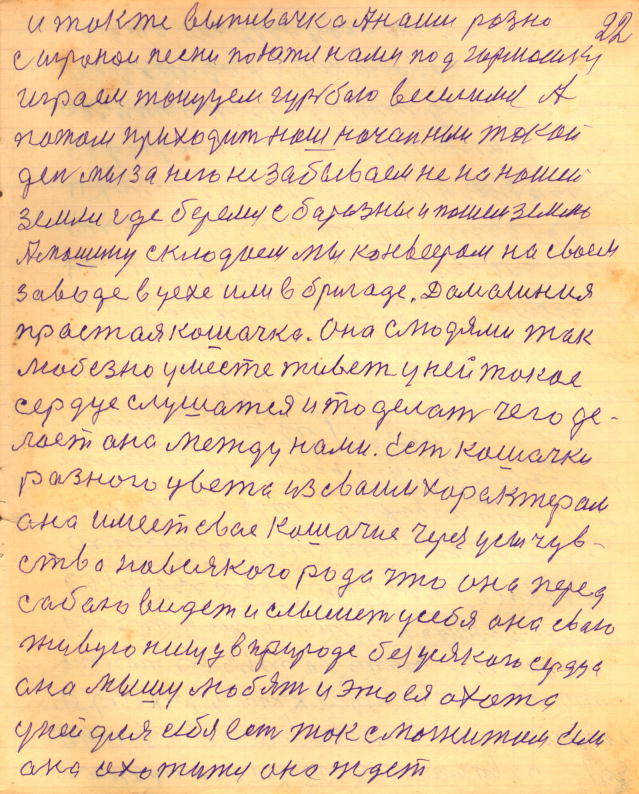 и также выпивачка А наши разно
22
стороной песни поютя нами под гармошку
играем танцуем гурбою веселимся А
потом приходит наш начатный такой
ден мы за него не забываем не на нашей
земли где беремся с баразны и пашем землю
А машину складуем мы конвеером на своем
заводе в цехе или в бригаде. Домашния
прастая кошачка. Она с людями так
любезно уместе живет у ней такое
сердце слушатся и то делат чего де-
лает она между нами. Ест кошачки
разного цвета из сваим характерам
она имеет свае кошачие через усы чув-
ство повсякого рода что она перед
сабаю видет и слышет у себя она сваю
живую пищу в природе без усякого сердца
она мышу любят и это ея охота
у ней для себя ест так сложитам если
она охотится она ждет